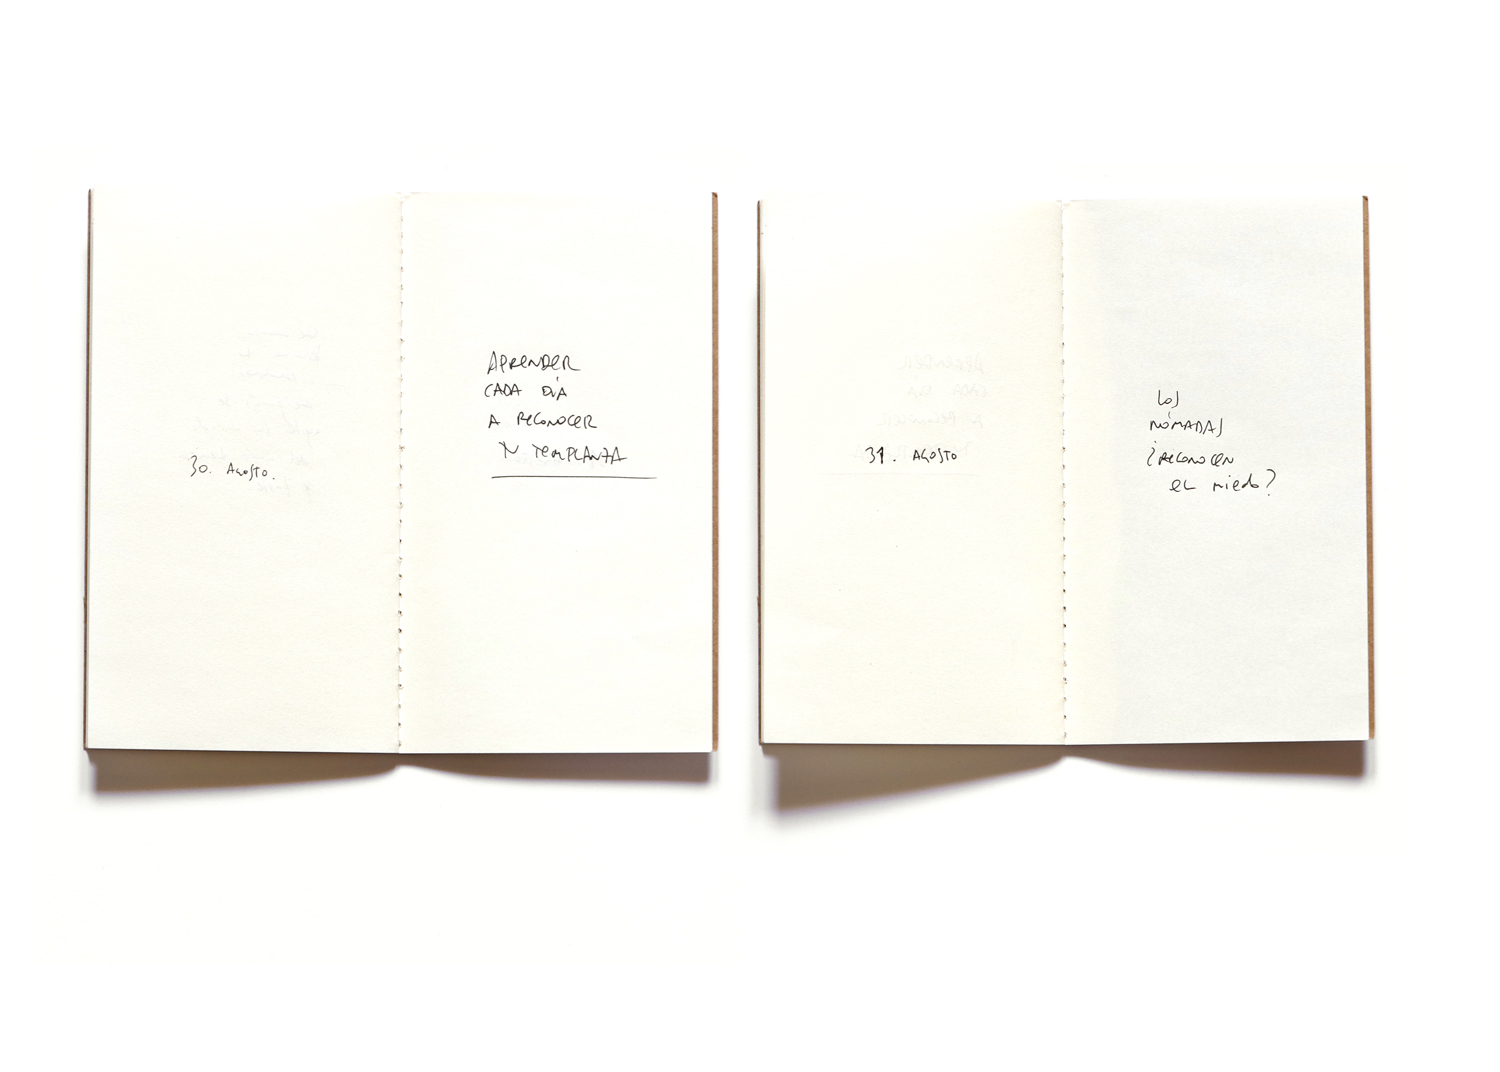 30. AGOSTO.
APRENDER
CADA DÍA
A RECONOCER
TU TEMPLANZA
31. AGOSTO
LOS
NÓMADAS
¿RECONOCEN
EL MIEDO?